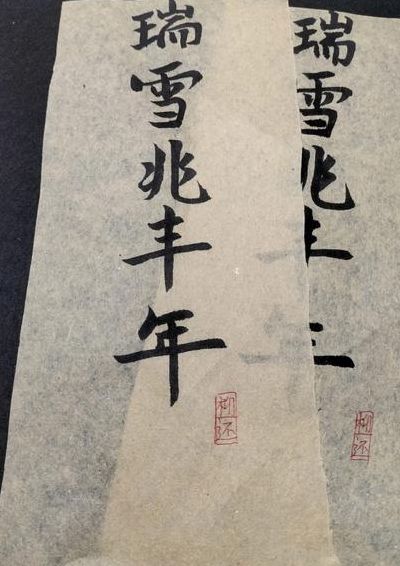 瑞雪兆丰年
瑞雪兆丰年